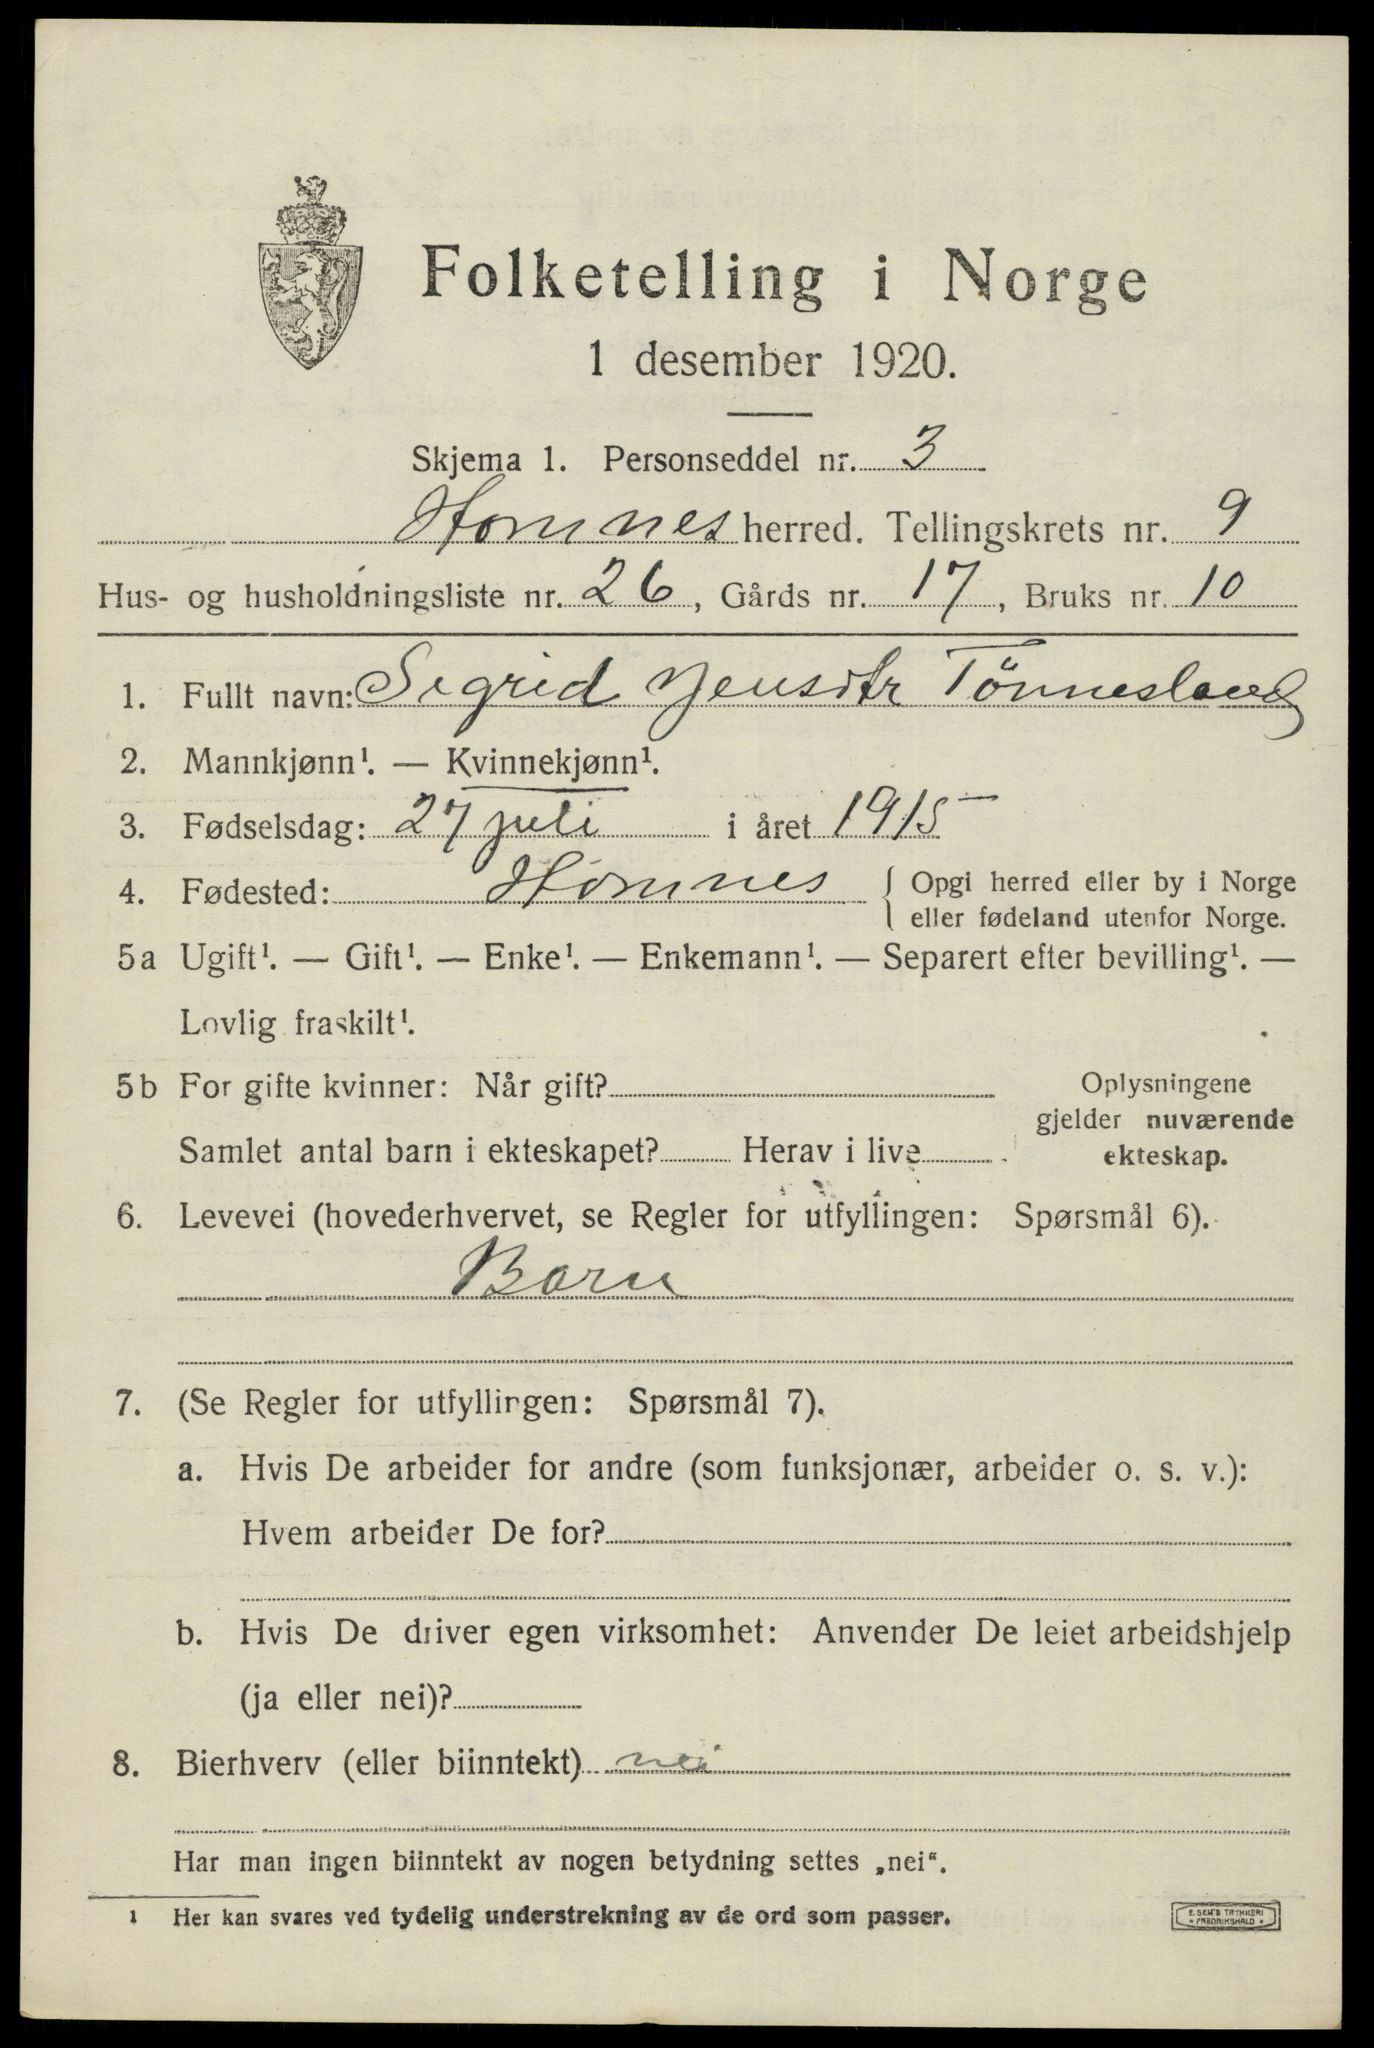 Folketelling i Norge
1 desember 1920.
Skjema 1. Personseddel nr. 3
Hornnes herred. Tellingskrets nr. 9
Hus- og husholdningsliste nr. 26, Gårds nr. 17, Bruks nr. 10
1. Fullt navn: Sigrid Jensdtr Tönnesland
2. Mannkjønn¹. — Kvinnekjønn¹.
3. Fødselsdag: 27 juli i året 1915
4. Fødested: Hornnes { Opgi herred eller by i Norge
eller fødeland utenfor Norge.
5a Ugift¹. — Gift¹. — Enke¹. — Enkemann¹. — Separert efter bevilling¹. —
Lovlig fraskilt¹.
5b For gifte kvinner: Når gift?
Samlet antal barn i ekteskapet? Herav i live
Oplysningene
gjelder nuværende
ekteskap.
6. Levevei (hovederhvervet, se Regler for utfyllingen: Spørsmål 6).
Barn
7. (Se Regler for utfyllingen: Spørsmål 7).
a. Hvis De arbeider for andre (som funksjonær, arbeider o. s. v.):
Hvem arbeider De for?
b. Hvis De driver egen virksomhet: Anvender De leiet arbeidshjelp
(ja eller nei)?
8. Bierhverv (eller biinntekt) nei
Har man ingen biinntekt av nogen betydning settes „nei“.
1 Her kan svares ved tydelig understrekning av de ord som passer.
E. SEM'S TRYKKERI
• FREDRIKSHALD •